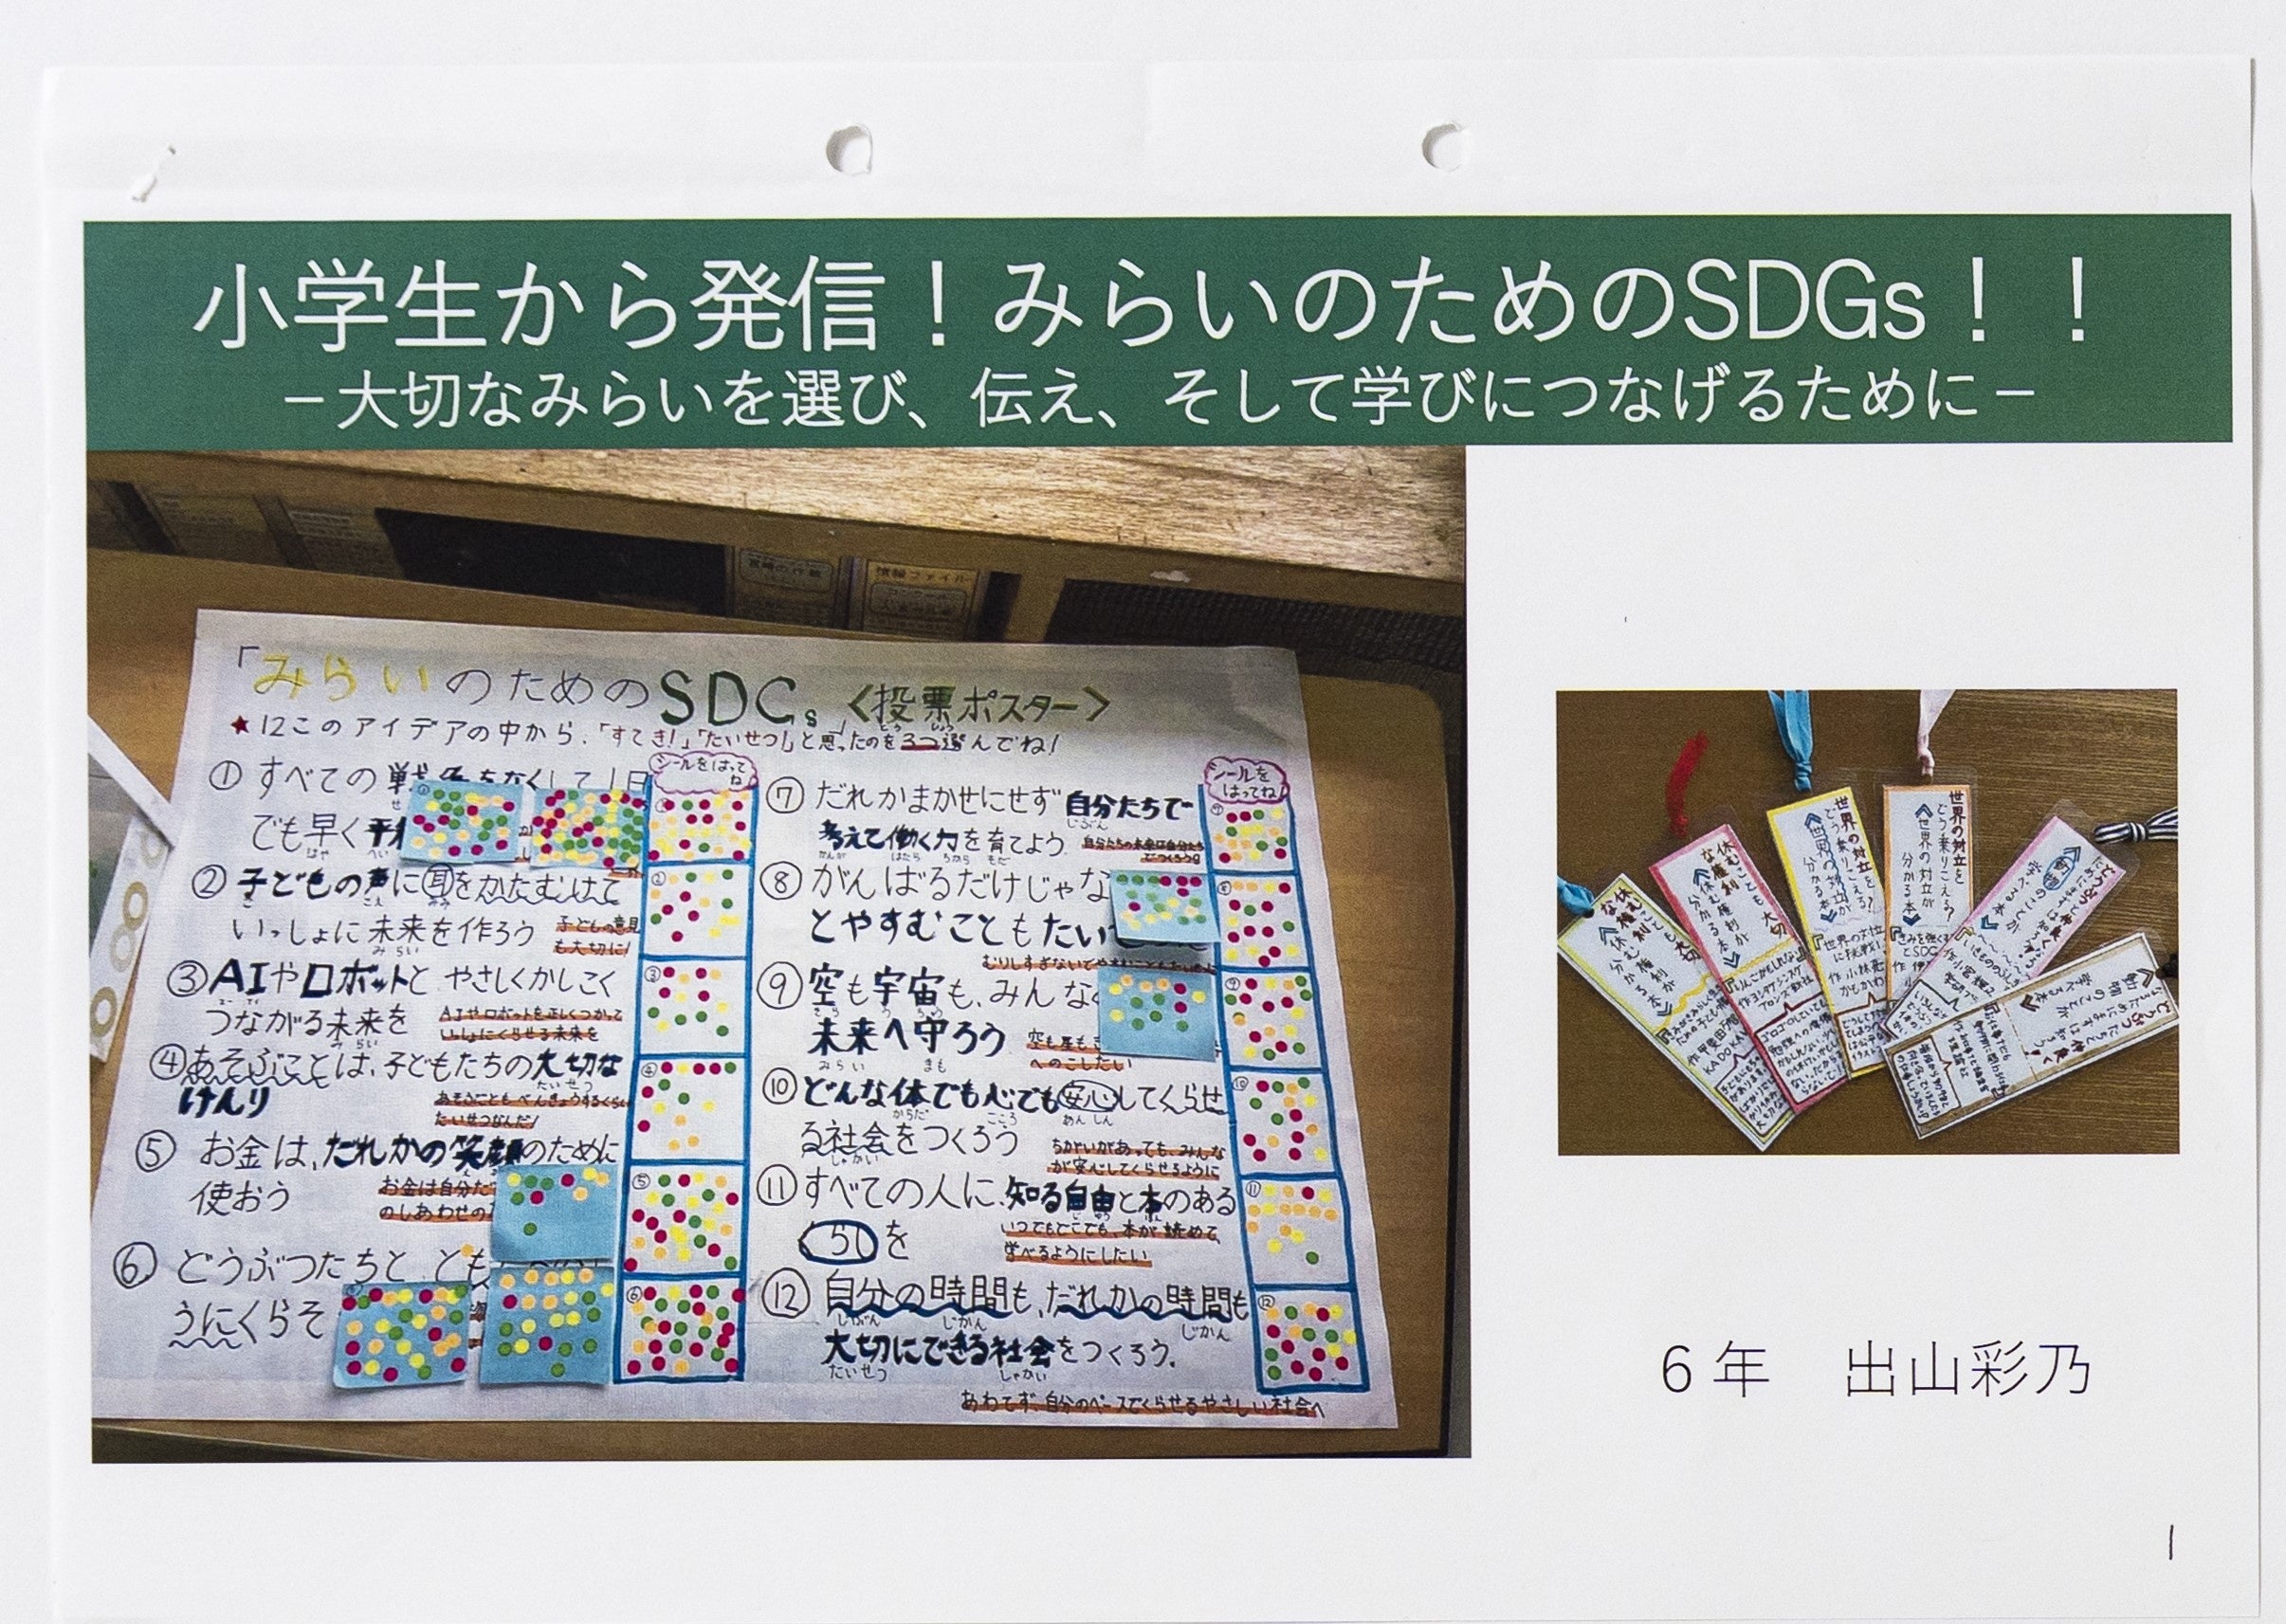 小学生から発信！みらいのためのSDGs！！
－大切なみらいを選び、伝え、そして学びにつなげるために－
「みらいのためのSDGs〈投票ポスター〉
★12このアイデアの中から、「すてき!」「たいせつ」と思ったのを3つ選んでね!
シールをはってね
① すべての戦 をなくして1日
でも早く平
② 子どもの声に耳をかたむけて
いっしょに未来を作ろう
子どもの意見
も大切に!
③ AIやロボットと やさしくかしこく
つながる未来を
AIやロボットを正しくつかって
いっしょにくらせる未来を
④ あそぶことは、子どもたちの大切な
けんり
あそぶことも べんきょうするくらい
たいせつなんだ!
⑤ お金は、だれかの笑顔のために
使おう
お金は自分だ
のしあわせの
⑥ どうぶつたちと とも
うにくらそ
シールをはってね
⑦ だれかまかせにせず 自分たちで
考えて働く力を育てよう
自分たちの未来は自分たち
でつくろう
⑧ がんばるだけじゃな
とやすむこともたい
むりしすぎないでやすむことも
⑨ 空も宇宙も、みんな
未来へ守ろう
空も星も
へのこしたい
⑩ どんな体でも心でも安心してくらせ
る社会をつくろう
ちがいがあっても、みんな
が安心してくらせるように
⑪ すべての人に、知る自由と本のある
くらしを
いつでもどこでも、本が読めて、
学べるようにしたい
⑫ 自分の時間も、だれかの時間も
大切にできる社会をつくろう。
あわてず、自分のペースでくらせるやさしい社会へ
休むことも大切
な権利
《休む権利が
分かる本》
世界の対立を
どう乗りこえる?
《世界の対立が
分かる本》
世界の対立を
どう乗りこえる?
《世界の対立が
分かる本》
6年　出山彩乃
1